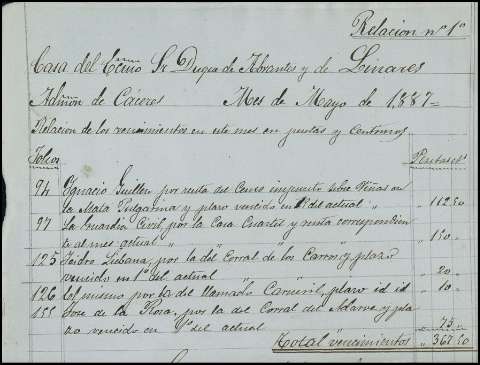 Relacion nº 1º
Casa del Exmo Sr Duque de Abrantes y de Linares
Admon de Cáceres Mes de Mayo de 1,887=
Relacion de los vencimientos en este mes en pesetas y centimos
Folios Pesetas cs
94 Ignacio Guillen por renta del Censo impuesto sobre Viñas en
la Mata Pulgarina y plazo vencido en 1º del actual " 112.50
97 La Guardia Civil, por la Casa Cuartel y renta correspondien
te al mes actual " " " " 150 "
125 Isidro Liviana, por la del Corral de los Carros, y plazo
vencido en 1º del actual " " " 20 "
126 El mismo por la del llamado Carneril, plazo id id " 10 "
155 Jose de la Rosa, por la del Corral del Adarve y pla
zo vencido en 1º del actual 75 "
Total vencimientos " 367.50